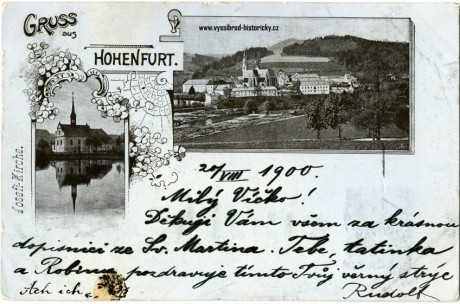 GRUSS
aus
HOHENFURT.
www.vyssibrod-historicky.cz
Josefi-Kirche.
VIII 1900.
Milý Vičko!
Děkuji Vám všem za krásnou
dopisnici ze Sv. Martina. Tebe, tatínka
a Robina pozdravuje tímto Tvůj věrný strýc
Ach ich Rudolf